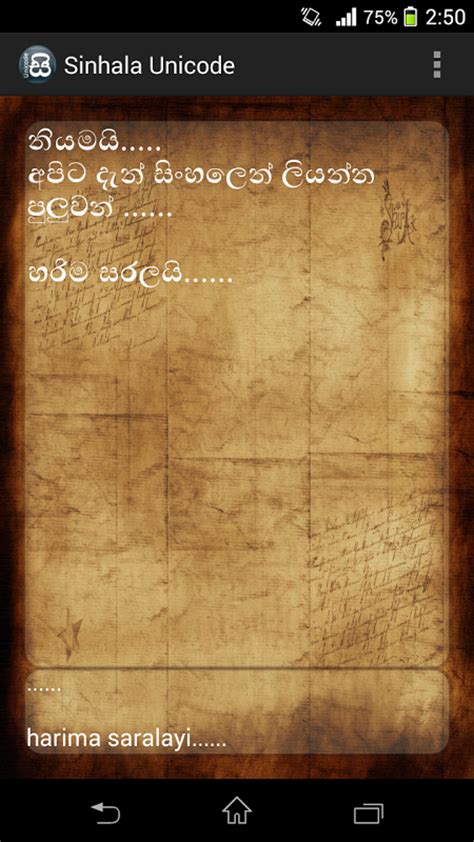 75% 2:50
Unicode සි Sinhala Unicode
නියමයි.....
අපිට දැන් සිංහලෙන් ලියන්න
පුලුවන් ......
හරිම සරලයි......
......
harima saralayi......